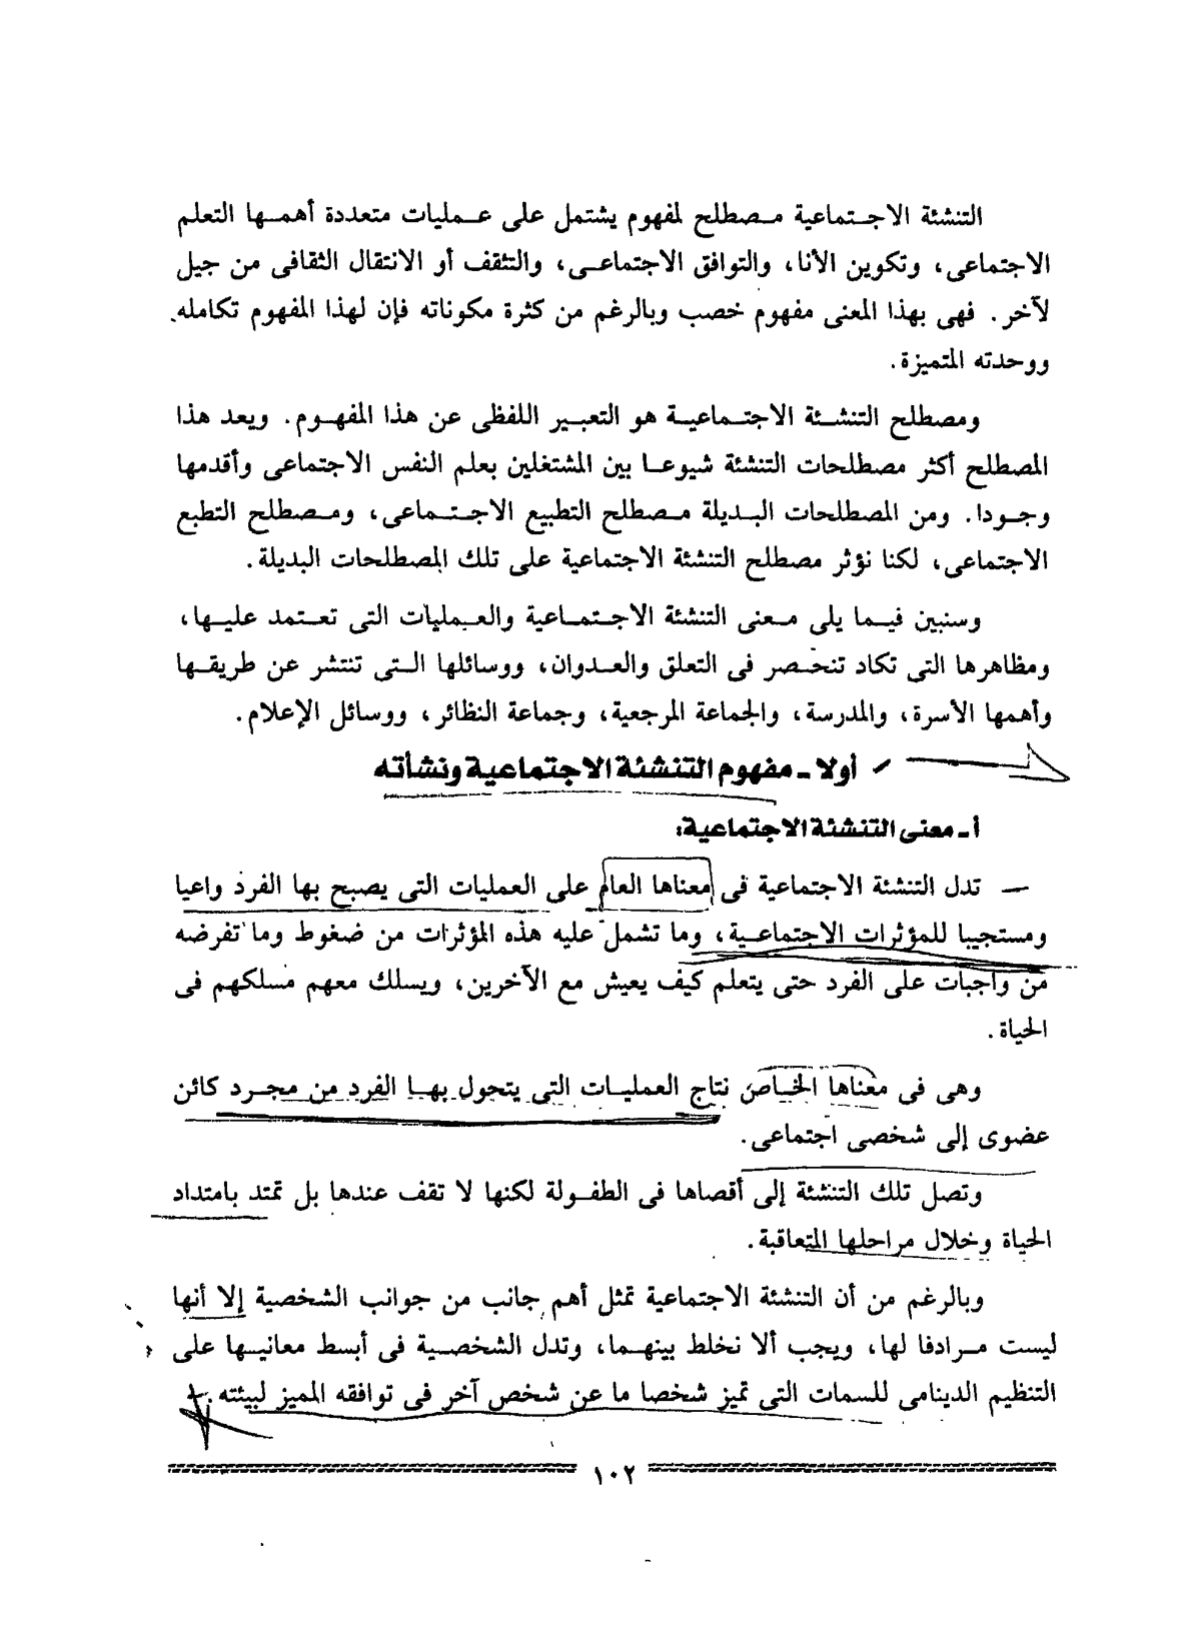 التنشئة الاجتماعية مصطلح لمفهوم يشتمل على عمليات متعددة أهمها التعلم
الاجتماعى، وتكوين الأنا، والتوافق الاجتماعى، والتثقف أو الانتقال الثقافى من جيل
لآخر. فهى بهذا المعنى مفهوم خصب وبالرغم من كثرة مكوناته فإن لهذا المفهوم تكامله
ووحدته المتميزة.
ومصطلح التنشئة الاجتماعية هو التعبير اللفظى عن هذا المفهوم. ويعد هذا
المصطلح أكثر مصطلحات التنشئة شيوعا بين المشتغلين بعلم النفس الاجتماعى وأقدمها
وجودا. ومن المصطلحات البديلة مصطلح التطبيع الاجتماعى، ومصطلح التطبع
الاجتماعى، لكنا نؤثر مصطلح التنشئة الاجتماعية على تلك المصطلحات البديلة.
وسنبين فيما يلى معنى التنشئة الاجتماعية والعمليات التى تعتمد عليها،
ومظاهرها التى تكاد تنحصر فى التعلق والعدوان، ووسائلها التى تنتشر عن طريقها
وأهمها الأسرة، والمدرسة، والجماعة المرجعية، وجماعة النظائر، ووسائل الإعلام.
أولا ـ مفهوم التنشئة الاجتماعية ونشأته
أ ـ معنى التنشئة الاجتماعية:
— تدل التنشئة الاجتماعية فى معناها العام على العمليات التى يصبح بها الفرد واعيا
ومستجيبا للمؤثرات الاجتماعية، وما تشمل عليه هذه المؤثرات من ضغوط وما تفرضه
من واجبات على الفرد حتى يتعلم كيف يعيش مع الآخرين، ويسلك معهم مسلكهم فى
الحياة.
وهى فى معناها الخاص نتاج العمليات التى يتحول بها الفرد من مجرد كائن
عضوى إلى شخصى اجتماعى.
وتصل تلك التنشئة إلى أقصاها فى الطفولة لكنها لا تقف عندها بل تمتد بامتداد
الحياة وخلال مراحلها المتعاقبة.
وبالرغم من أن التنشئة الاجتماعية تمثل أهم جانب من جوانب الشخصية إلا أنها
ليست مرادفا لها، ويجب ألا نخلط بينهما، وتدل الشخصية فى أبسط معانيها على
التنظيم الدينامى للسمات التى تميز شخصا ما عن شخص آخر فى توافقه المميز لبيئته.
١٠٢